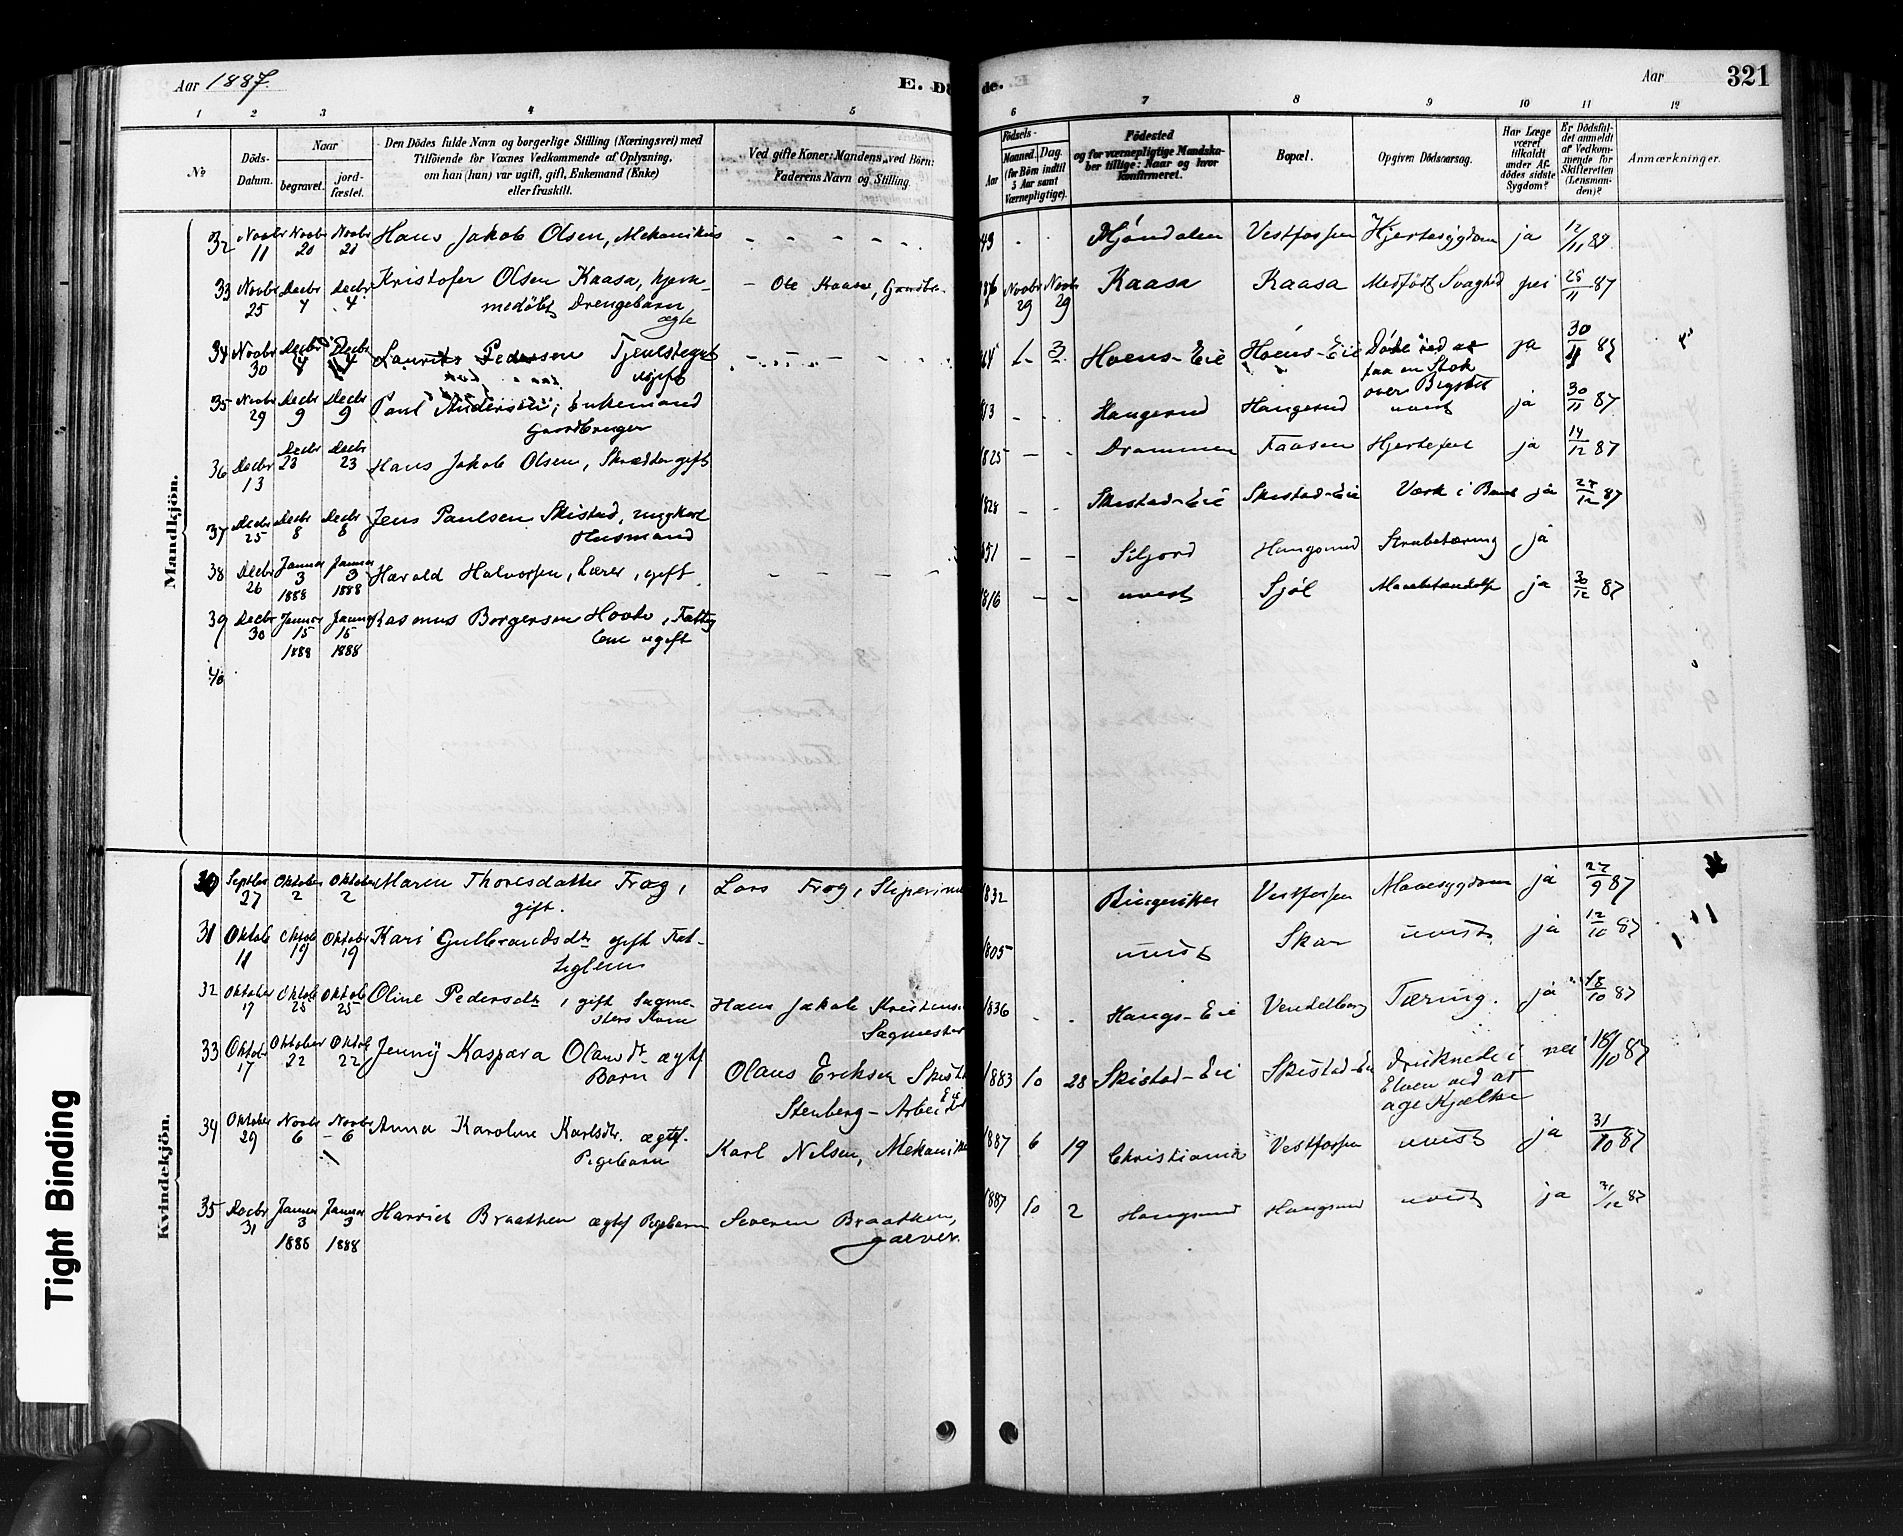 Aar 1887.
E. Dö
de.
Aar
321
1 2 3 4 5
6 7 8 9 10 11 12
No
Döds-Datum.
Naar
begravet.
jord-fæstet.
Den Dödes fulde Navn og borgerlige Stilling (Næringsvei) med
Tilföiende for Voxnes Vedkommende af Oplysning,
om han (hun) var ugift, gift, Enkemand (Enke)
eller fraskilt.
Ved gifte Koner: Mandens, ved Börn:
Faderens Navn og Stilling.
Födsels-
Aar
Maaned. Dag.
(for Börn indtil
5 Aar samt
Værnepligtige).
Födested
og for værnepligtige Mandska-
ber tillige: Naar og hvor
konfirmeret.
Bopæl.
Opgiven Dödsaarsag.
Har Læge
været
tilkaldt
under Af-
dödes sidste
Sygdom?
Er Dödsfal-
det anmeldt
af Vedkom-
mende for
Skifteretten
(Lensman-
den)?
Anmærkninger.
Mandkjön.
32 Novbr 11 Novbr 20 Novbr 20 Hans Jakob Olsen, Mekanikus - - - - - 43 Mjöndalen Vestfossen Hjertesygdom ja 12/11 87
33 Novbr 25 Decbr 4 Decbr 4 Kristofer Olsen Kaasa, hjem-
medöbt Drengebarn
ægte
Ole Kaasa, Gaardbr. Novbr 29 Kaasa Kaasa Medfödt Svaghed nei 25/11 87
34 Novbr 30 Decbr Decbr Laurits Pedersen Tjenestegut
ugift
64 1 3 Hoens-Eie Hoens-Eie Döde ved at
faa en Stok
over Brystet
ja 30/11 87
35 Novbr 29 Decbr 9 Decbr 9 Paul Andersen, Enkemand
Gaardbruger
13 - - Haugerud Haugerud uvist ja 30/11 87
36 Decbr 13 Decbr 23 Decbr 23 Hans Jakob Olsen, Skrædder gift 1825 - - Drammen Faasen Hjertefeil ja 14/12 87
37 Decbr 25 Decbr 8 Decbr 8 Jens Paulsen Skistad, ungkarl
Husmand
1828 - - Skistad-Eie Skistad-Eie Værk i Benet ja 27/12 87
38 Decbr 26 Januar 3 1888 Januar 3 1888 Harald Halvorsen, Lærer, gift - - - - 51 - - Siljord Haugsund Strubetæring ja
39 Decbr 30 Januar 15 1888 Januar 15 1888 Rasmus Borgersen Hovde, Fattig
lem ugift
1816 - - uvist Sjöl ja 30/12 87
40
Kvindekjön.
30 Septbr 27 Oktober 2 Oktober 2 Maren Thoresdatter Frog,
gift.
Lars Frog, 1832 Ringeriket Vestfossen Mavesygdom ja 27/9 87
31 Oktob 11 Oktob 19 Oktober 19 Kari Gulbrandsdtr gift Fat-
tiglem
1805 uvist Skar uvist ja 12/10 87
32 Oktober 17 Oktob 25 Oktob 25 Oline Pedersdtr, gift Sagme-
sters Kone
Hans Jakob Kristens
Sagmester
1836 - - Haugs-Eie Vendelborg Tæring. ja 18/10 87
33 Oktob 17 Oktober 22 Oktob 22 Jenny Kaspara Olausdtr ægtf
Barn
Olaus Eriksen Skist
Eie
Stenberg-Arbeider
1883 10 28 Skistad-Eie Skistad-Eie Druknede i
Elven ved at
age Kjælke
nei 18/10 87
34 Oktober 29 Novbr 6 Novbr 6 Anna Karoline Karlsdtr. ægtf.
Pigebarn
Karl Nilsen, Mekanik 1887 6 19 Christiania Vestfossen uvist ja 31/10 87
35 Decbr 31 Januar 3 1888 Januar 3 1888 Harriet Braathen ægtf Pigebarn Severin Braathen,
garver.
1887 10 2 Haugsund Haugsund uvist ja 31/12 87
Tight Binding